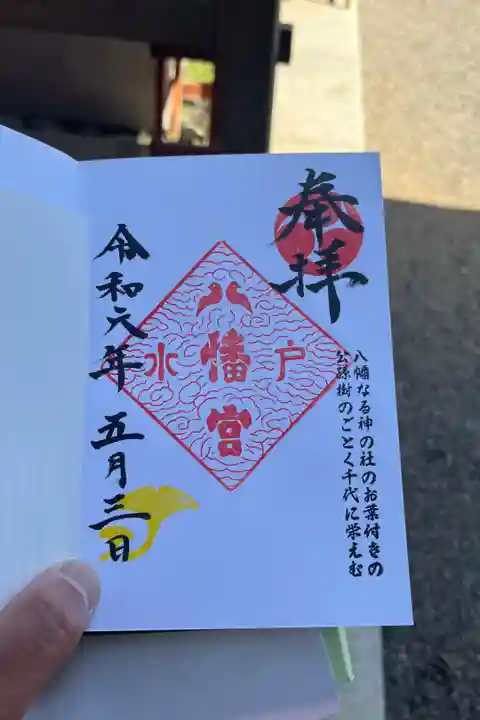 奉拝
八幡なる神の社のお葉付きの
公孫樹のごとく千代に栄えむ
水戸
八幡宮
令和六年 五月三日